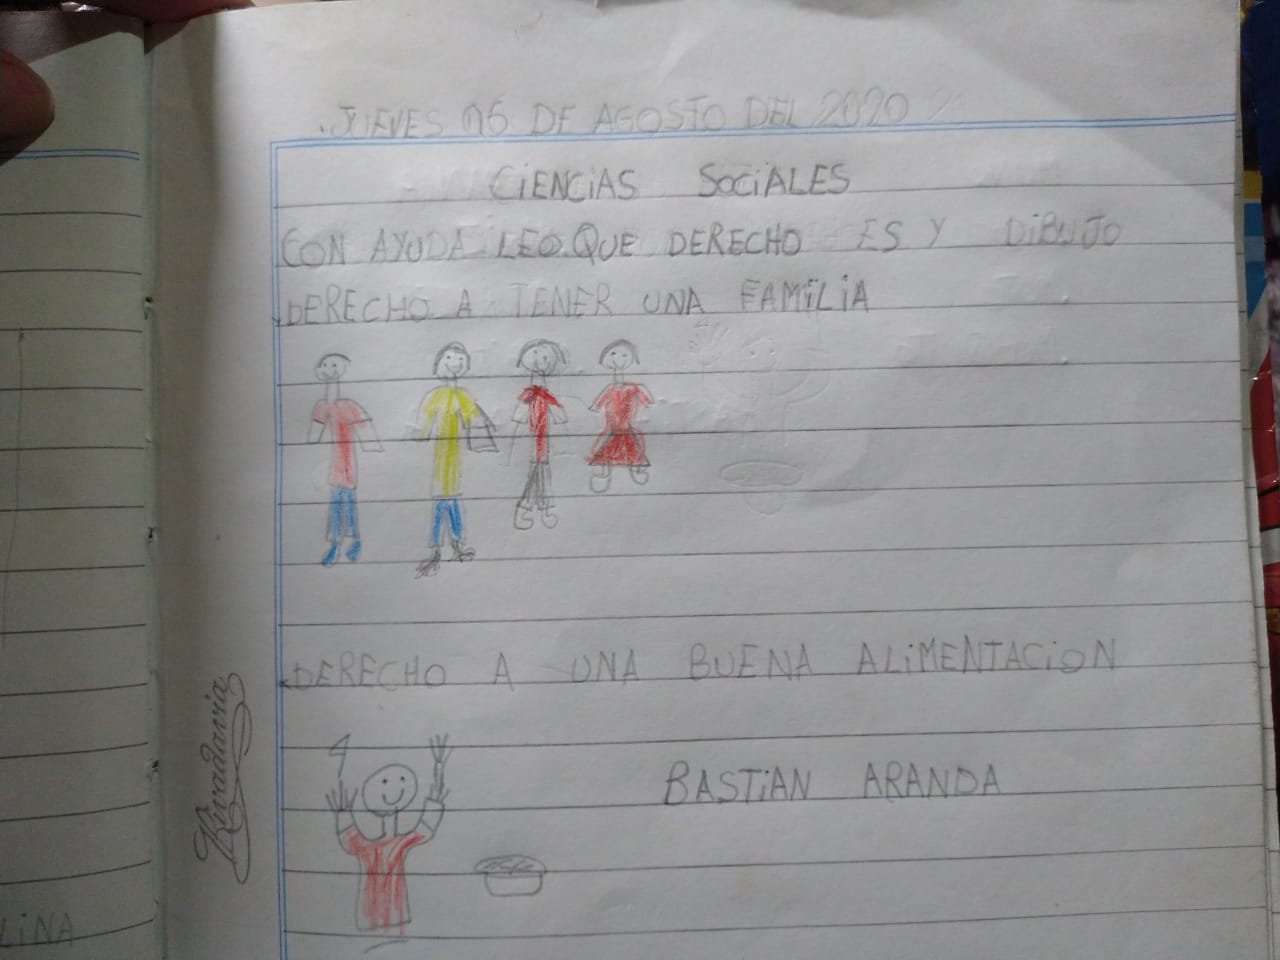 JUEVES 06 DE AGOSTO DEL 2020
CiENCiAS SOCiALES
CON AYUDA LEO QUE DERECHO ES Y DiBUJO
DERECHO A TENER UNA FAMiLiA
DERECHO A UNA BUENA ALiMENTACiON
BASTiAN ARANDA
Rivadavia
LiNA